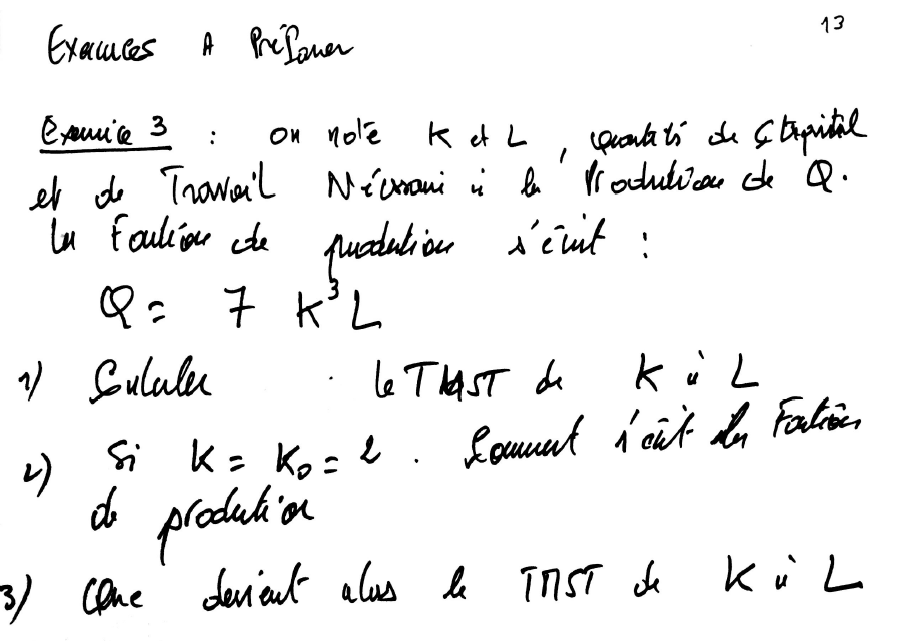 13
Exercices A Préparer
Exercice 3 : on note K et L, quantité de Capital
et de Travail Nécessaire à la Production de Q.
La Fonction de production s'écrit :
Q = 7 K³L
1) Calculer le TMST de K à L
2) Si K = K₀ = 2. Comment s'écrit la Fonction
de production
3) Que devient alors le TMST de K à L